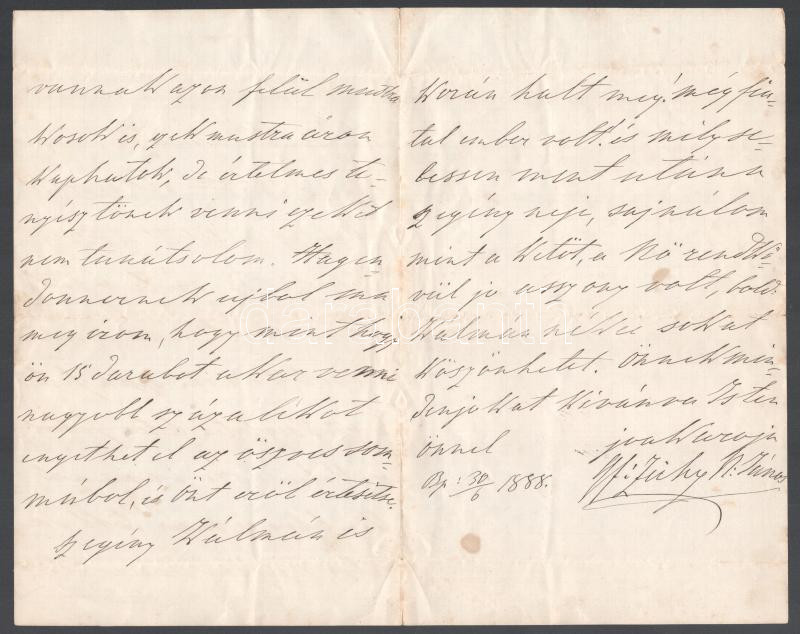 vannak azon felül mustra
kosok is, ezek mustra áron
kaphatok, de értelmes te-
nyésztönek venni ezeket
nem tanátsolom. Hagen-
donnernek ujbol ma
meg irom, hogy mint hogy
ön 15 darabot akar venni
nagyobb százalékot
engedhet el az öszves som-
mábol, és Önt eröl értesitse.
szegény Kálmán is
korán halt meg! még fia-
tal ember volt! és mily se-
bessen ment utána
szegény neje, sajnálom
mint a ketöt, a Nö rendki-
vül jo asszony volt, bold:
Kálmán néki sokat
köszönhetet. Önnek min-
denjokat kivánva Isten
önnel joakaroja
Bp: 30/6 1888. Gf: Zichy N: János
darabanth